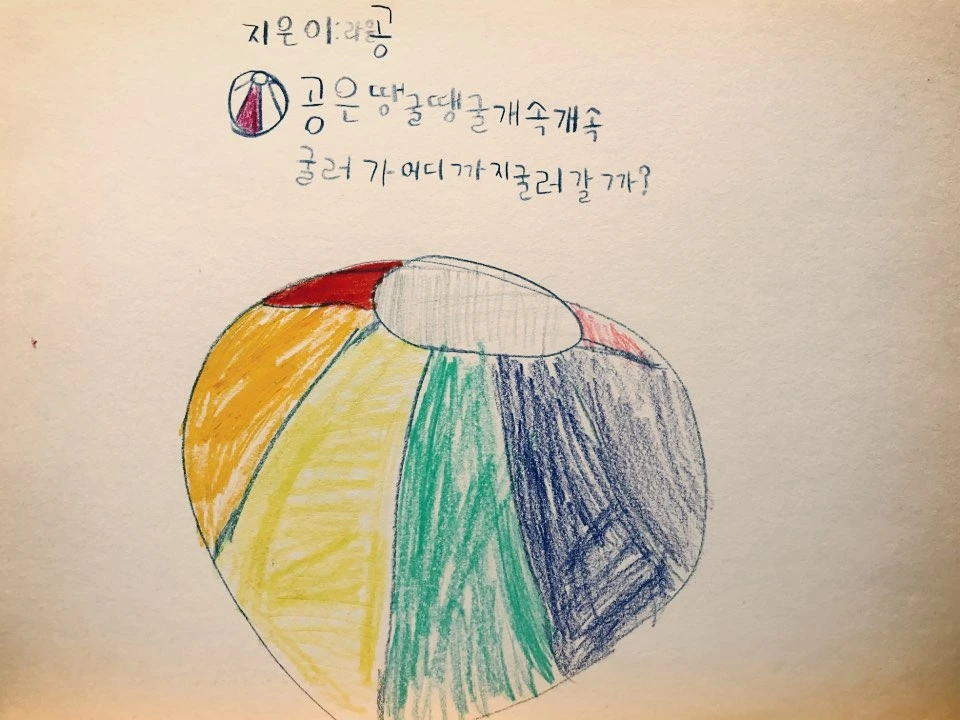 지은이:라윤 공
공은 땡굴땡굴개속개속
굴러 가 어디까지굴러갈까?